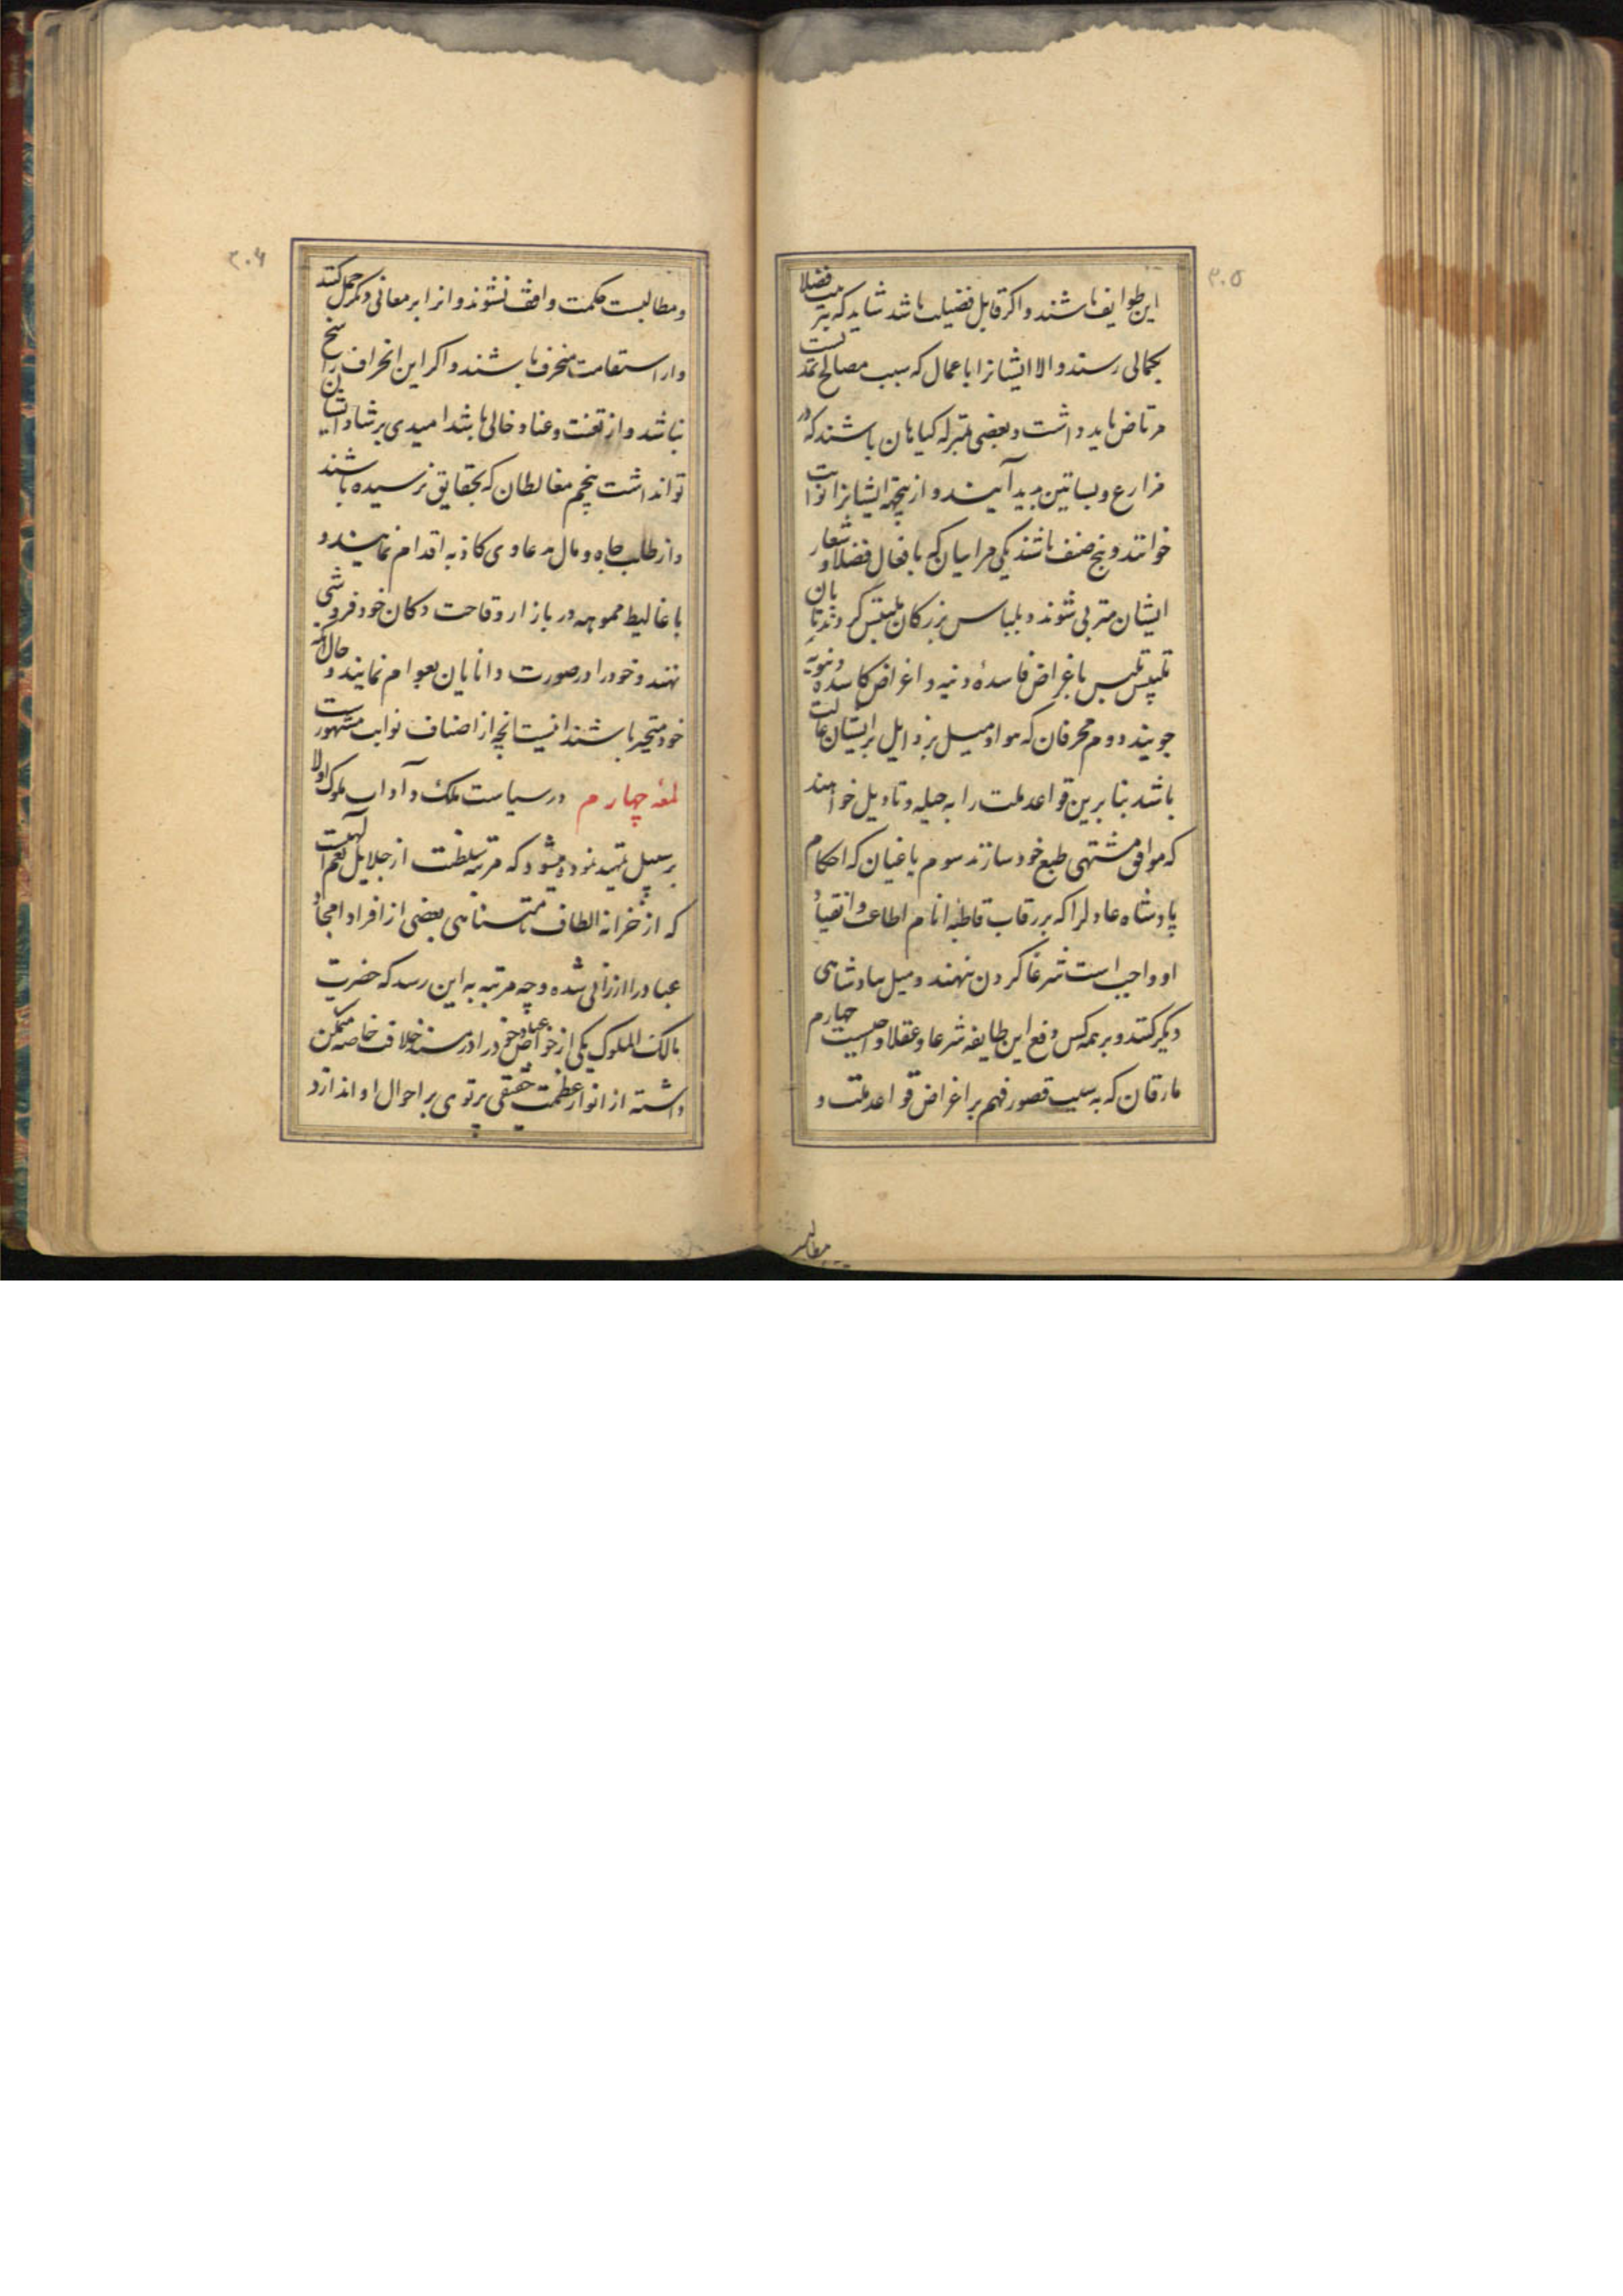 ۲۰۵
این طوایف باشند و اکر قابل فضیلت باشد شاید که بتربیت فضلا
بکمالی رسند و الا ایشانرا باعمال که سبب مصالح تمدنست
مرتاض باید داشت و بعضی بمنزله کیاهان باشند که در
مزارع و بساتین پدید آیند و ازینجهة ایشانرا نوابت
خوانند و پنج صنف باشند یکی مراییان که بافعال فضلا و شعار
ایشان متزیی شوند و بلباس بزرکان ملتبس کردند تا بآن
تلبیس باغراض فاسدهٔ دنیه و اغراض کاسدهٔ دنیویه
جویند دوم محرفان که مواد میل برذایل بر ایشان غالب
باشد بنا برین قواعد ملت را به حیله و تاویل خواهند
که موافق مشتهی طبع خود سازند سوم باغیان که احکام
پادشاه عادلرا که بر رقاب قاطبهٔ انام اطاعت و انقیاد
او واجب است شرعا کردن ننهند و میل بپادشاهی
دیکر کنند و بر همه کس دفع این طایفه شرعا و عقلا واجبست چهارم
مارقان که به سبب قصور فهم بر اغراض قواعد ملت و
مطالب
۲۰۶
و مطالب حکمت واقف نشوند و انرا بر معانی دیکر حمل کنند
و از استقامت منحرف باشند و اکر این انحراف راسخ
نباشد و از تعنت و عناد خالی باشد امیدی برشاد ایشان
توان داشت پنجم مغالطان که بحقایق نرسیده باشند
و از طلب جاه و مال بدعاوی کاذبه اقدام نمایند و
باغالیط مموهه در بازار وقاحت دکان خود فروشی
نهند و خود را در صورت دانایان بعوام نمایند و حال آنکه
خود متحیر باشند اینست انچه از اصناف نوابت مشهورست
لمعهٔ چهارم در سیاست ملک و آداب ملوک اولا
بر سبیل تمهید نموده میشود که مرتبه سلطنت از جلایل نعم الهیست
که از خزانه الطاف نامتناهی بعضی از افراد امجاد
عباد را ارزانی شده و چه مرتبه به این رسد که حضرت
مالک الملوک یکی از خواص عباد خود را در مسند خلافت خاصه متمکن
داشته از انوار عظمت حقیقی پرتوی بر احوال او اندازد